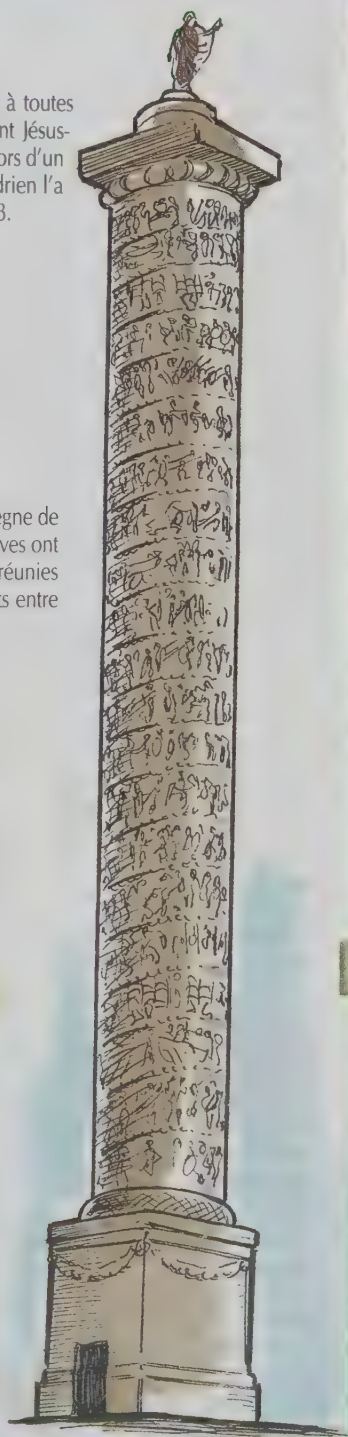 à toutes
nt Jésus-
ors d'un
drien l'a
3.
ègne de
ves ont
réunies
ts entre